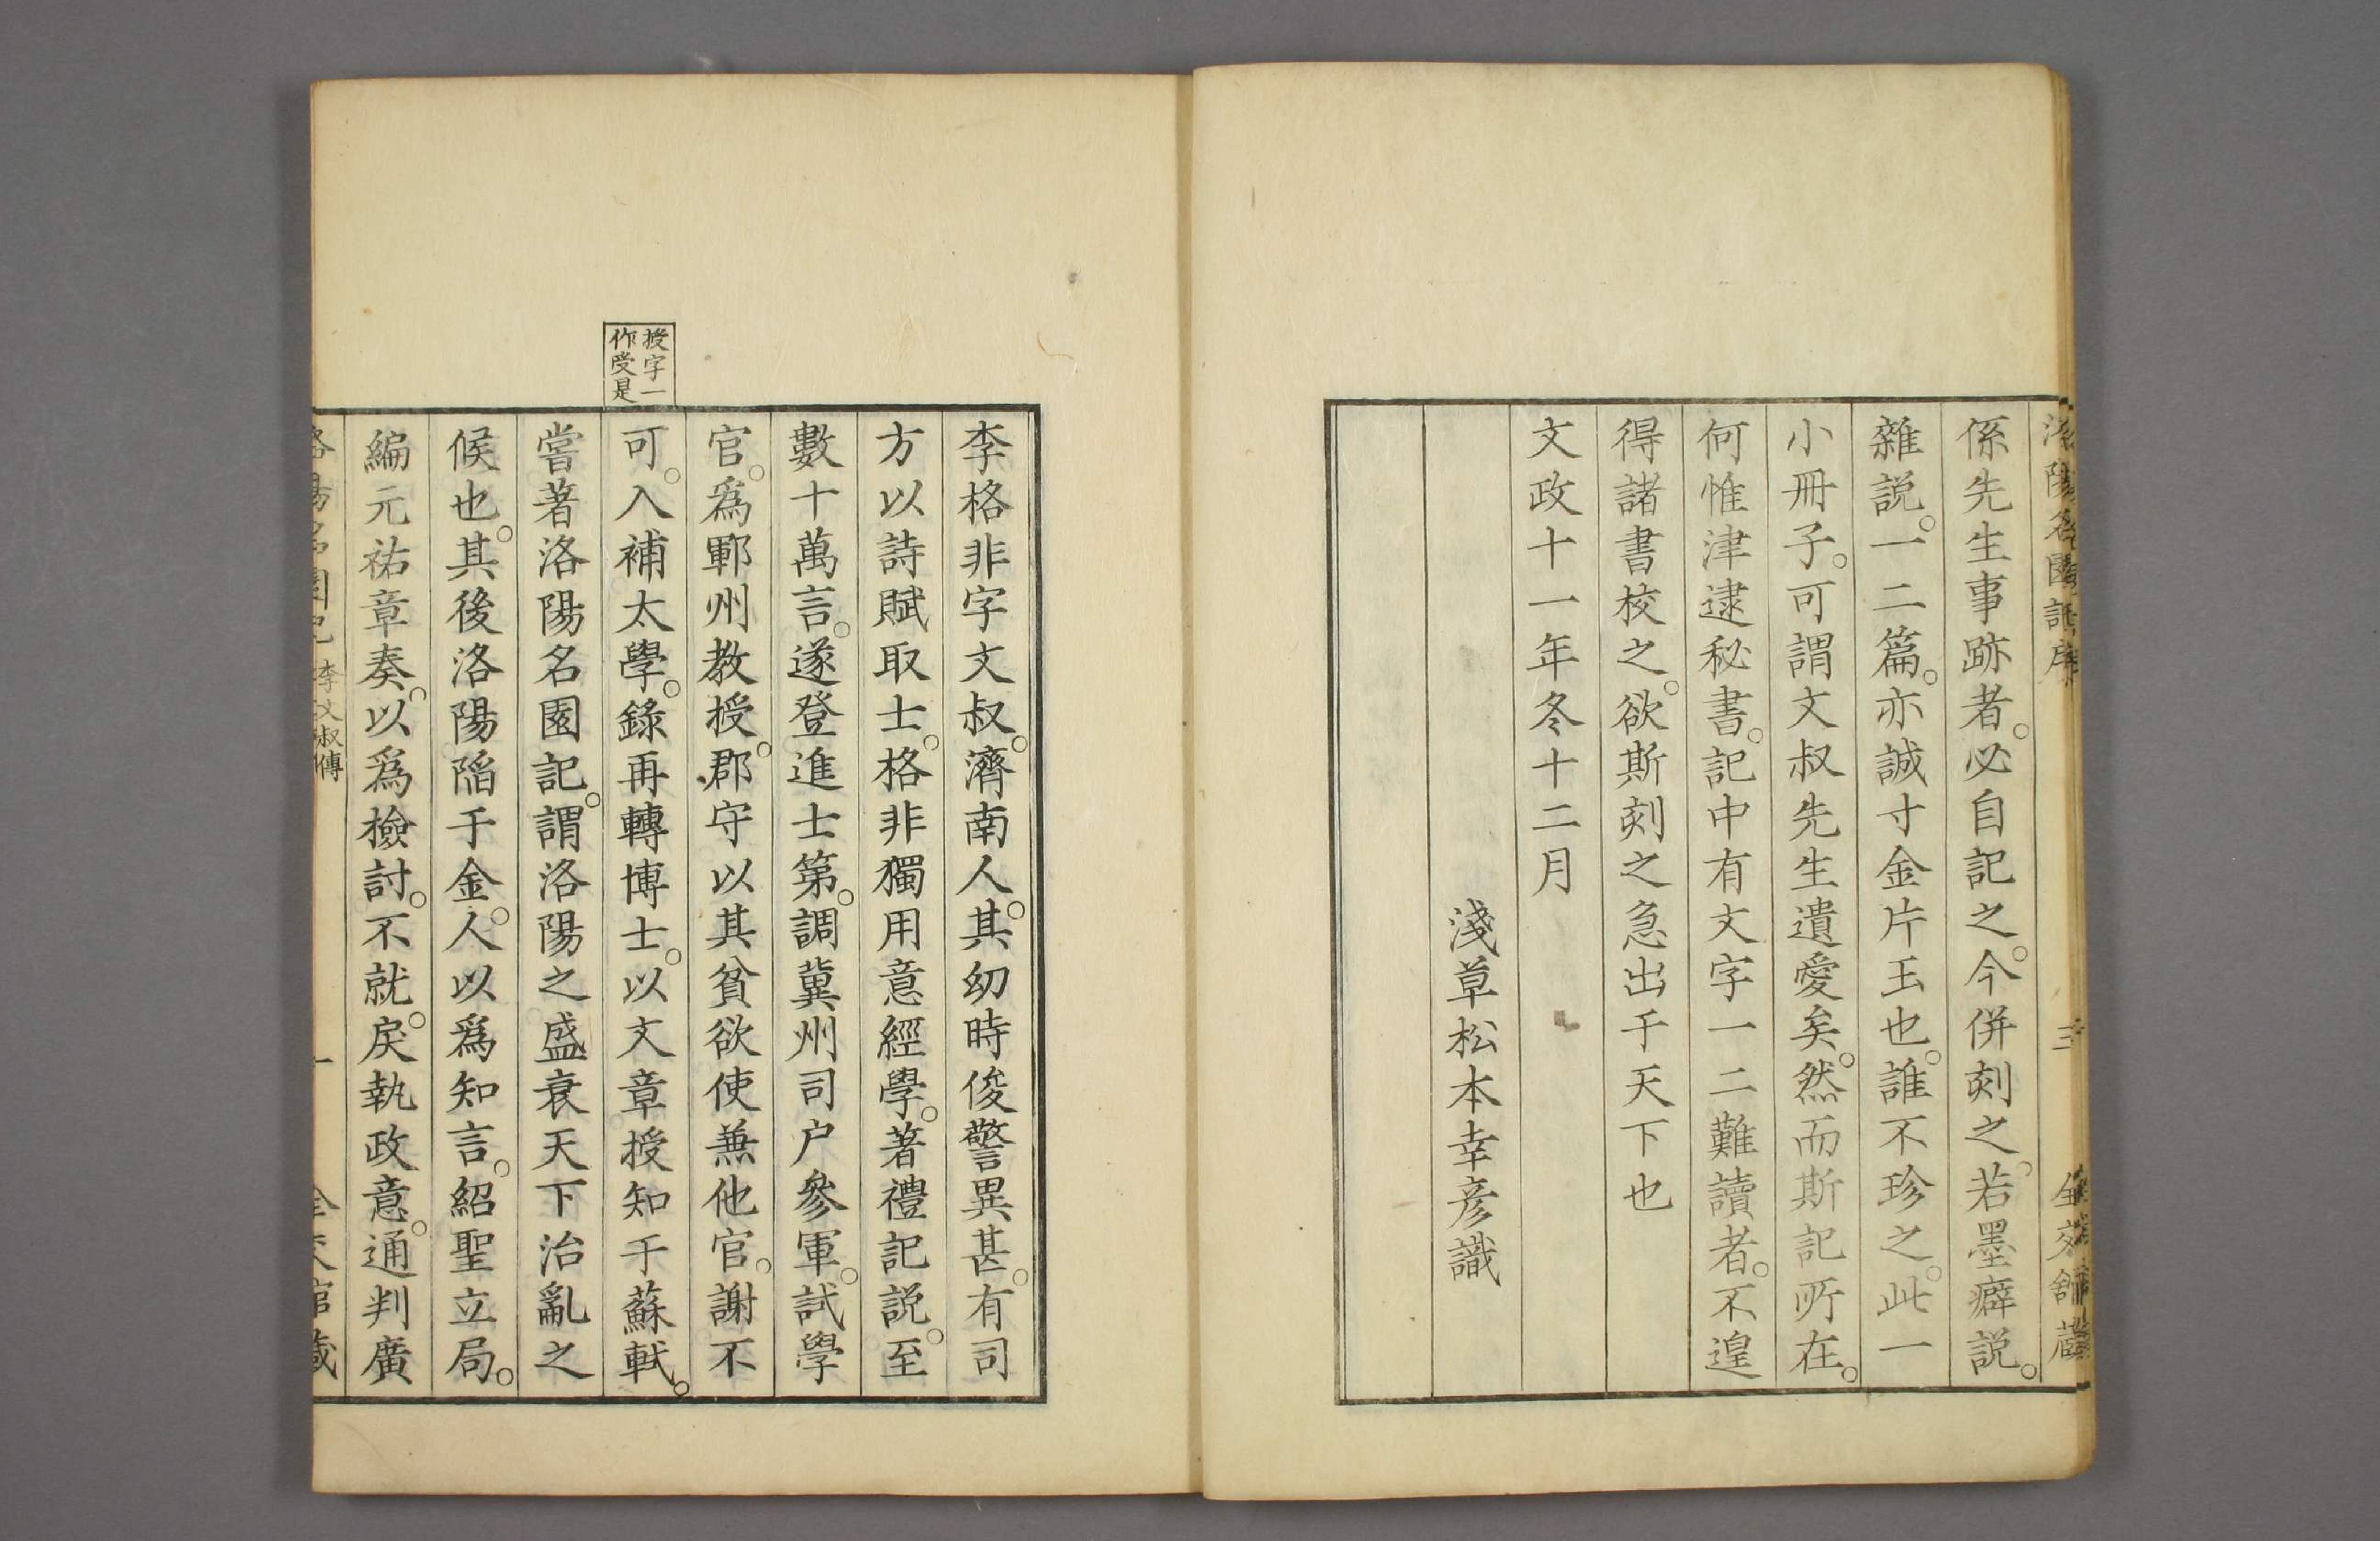 洛陽名園記序 三 全交館藏
係先生事跡者。必自記之。今併刻之。若墨癖説。
雜説。一二篇。亦誠寸金片玉也。誰不珍之。此一
小冊子。可謂文叔先生遺愛矣。然而斯記所在。
何惟津逮秘書。記中有文字一二難讀者。不遑
得諸書校之。欲斯刻之急出于天下也
文政十一年冬十二月
淺草松本幸彦識
授字一
作受是
李格非字文叔。濟南人。其幼時俊警異甚。有司
方以詩賦取士。格非獨用意經學。著禮記説。至
數十萬言。遂登進士第。調冀州司户參軍。試學
官。爲鄆州教授。郡守以其貧欲使兼他官。謝不
可。入補太學。錄再轉博士。以文章授知于蘇軾。
嘗著洛陽名園記。謂洛陽之盛衰天下治亂之
候也。其後洛陽陷于金。人以爲知言。紹聖立局。
編元祐章奏。以爲檢討。不就。戾執政意。通判廣
洛陽名園記 李文叔傳 一 全交館藏